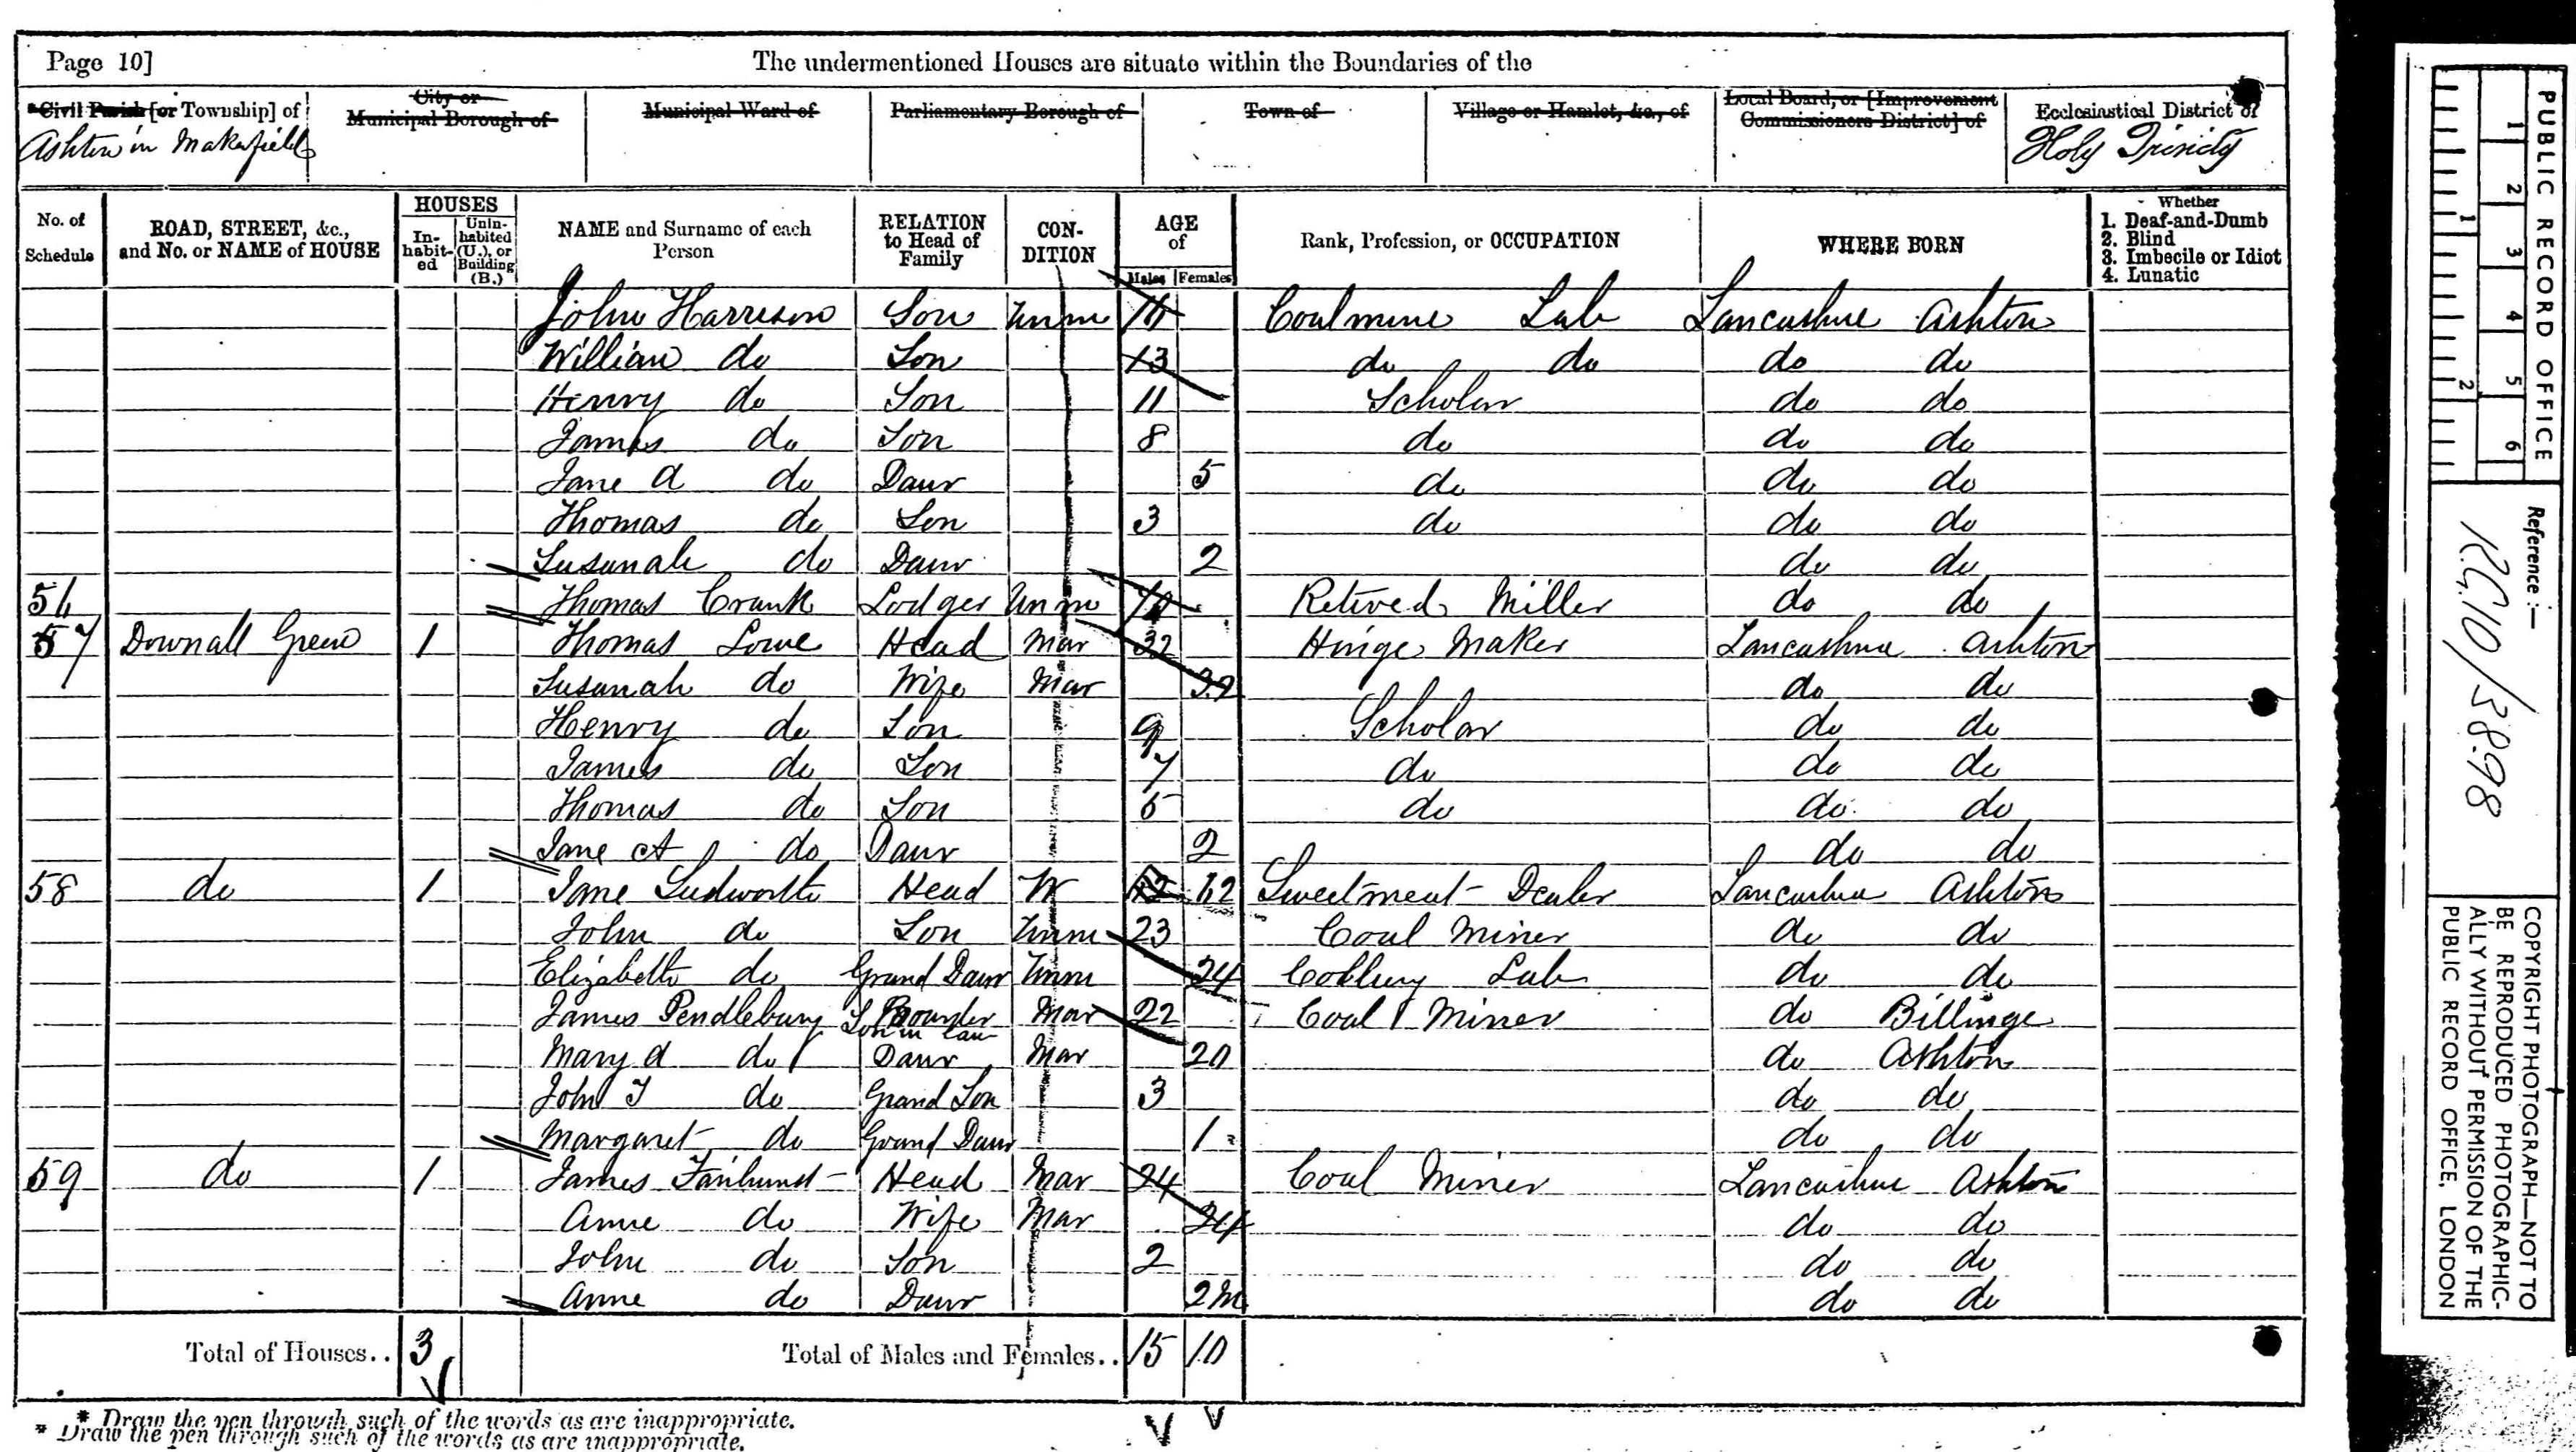 Page 10]
The undermentioned Houses are situate within the Boundaries of the
*Civil Parish [or Township] of
City or Municipal Borough of
Municipal Ward of
Parliamentary Borough of
Town of
Village or Hamlet, &c., of
Local Board, or [Improvement Commissioners District] of
Ecclesiastical District of
Ashton in Makerfield
Holy Trinity
No. of Schedule
ROAD, STREET, &c., and No. or NAME of HOUSE
HOUSES
In-habit-ed
Unin-habited (U.), or Building (B.)
NAME and Surname of each Person
RELATION to Head of Family
CON-DITION
AGE of
Males Females
Rank, Profession, or OCCUPATION
WHERE BORN
Whether
1. Deaf-and-Dumb
2. Blind
3. Imbecile or Idiot
4. Lunatic
John Harrison Son Unm Coalmine Lab Lancashire Ashton
William do Son 13 do do do do
Henry do Son 11 Scholar do do
James do Son 8 do do do
Jane A do Daur 5 do do do
Thomas do Son 3 do do do
Susanah do Daur 2 do do
Thomas Crank Lodger Unm Retired Miller do do
57 Downall Green 1 Thomas Lowe Head Mar 32 Hinge Maker Lancashire Ashton
Susanah do Wife Mar do do
Henry do Son 9 Scholar do do
James do Son 7 do do do
Thomas do Son 5 do do do
Jane A do Daur 2 do do
58 do 1 Jane Ludworth Head W 62 Sweetmeat Dealer Lancashire Ashton
John do Son Unm 23 Coal Miner do do
Elizabeth do Grand Daur Unm 24 Colliery Lab do do
James Pendlebury Boarder Son in law Mar 22 Coal Miner do Billinge
Mary A do Daur Mar 20 do Ashton
John T do Grand Son 3 do do
Margaret do Grand Daur 1 do do
59 do 1 James Fairhurst Head Mar 24 Coal Miner Lancashire Ashton
Anne do Wife Mar 24 do do
John do Son 2 do do
Anne do Daur 2m do do
Total of Houses.. 3
Total of Males and Females.. 15 10
* Draw the pen through such of the words as are inappropriate.
* Draw the pen through such of the words as are inappropriate.
PUBLIC RECORD OFFICE
1 2 3 4 5 6
1 2
Reference:—
RG10/3898
COPYRIGHT PHOTOGRAPH—NOT TO
BE REPRODUCED PHOTOGRAPHIC-
ALLY WITHOUT PERMISSION OF THE
PUBLIC RECORD OFFICE, LONDON